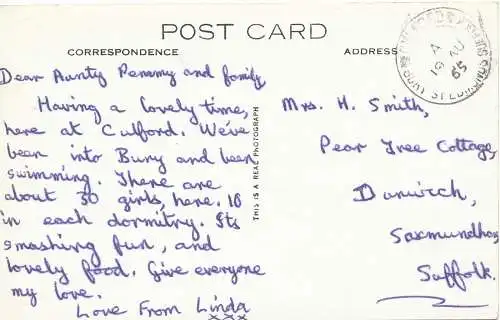 POST CARD
CORRESPONDENCE
ADDRESS
Dear Aunty Pemmy and family,
Having a lovely time,
here at Culford. We've
been into Bury and been
swimming. There are
about 30 girls, here. 10
in each dormitry. Its
smashing fun, and
lovely food. Give everyone
my love.
Love From Linda
xxx
THIS IS A REAL PHOTOGRAPH
Mrs. H. Smith,
Pear Tree Cottage,
Dunwich,
Saxmundham
Suffolk.
A
19 AU
65
BURY ST EDMUNDS